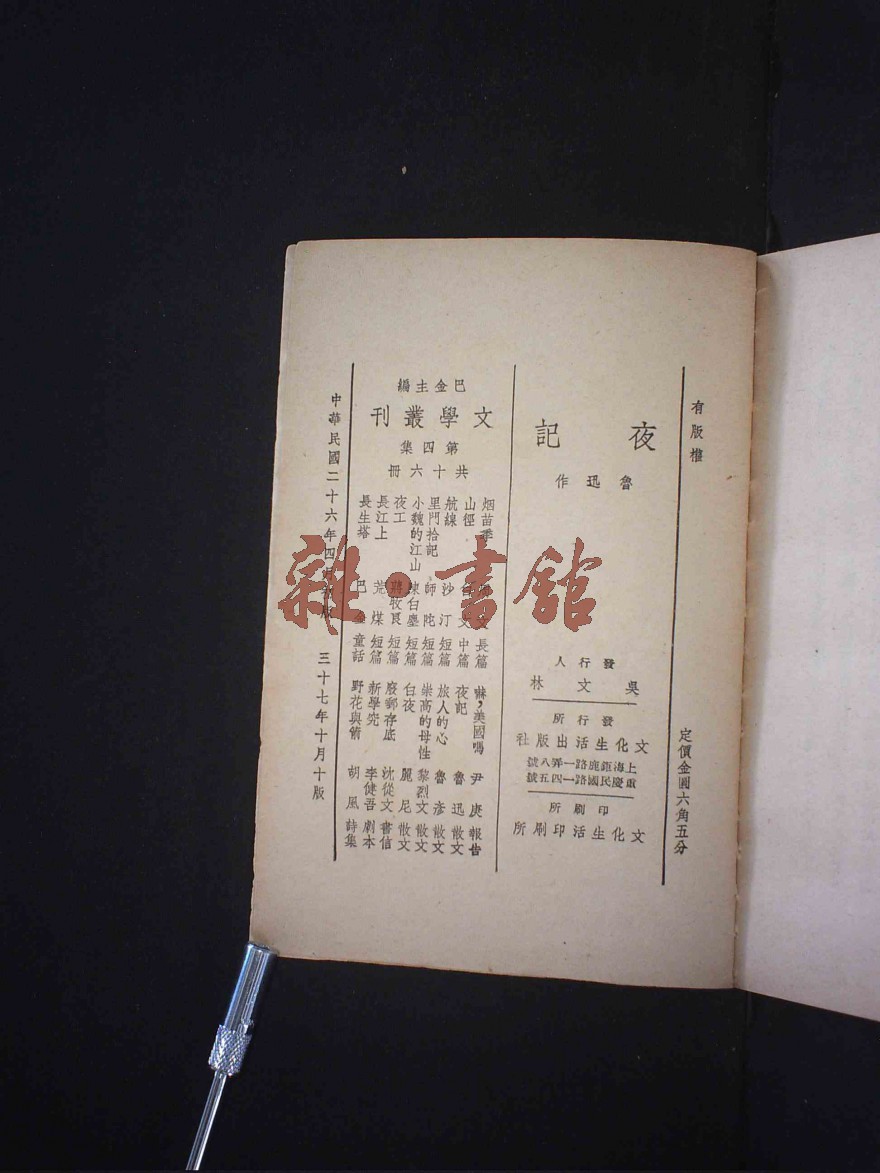 有版權
定價金圓六角五分
夜記
魯迅作
發行人
吳文林
發行所
文化生活出版社
上海鉅鹿路一弄八號
重慶民國路一四五號
印刷所
文化生活印刷所
巴金主編
文學叢刊
第四集
共十六冊
烟苗季 長篇
山徑 中篇
航線 沙汀 短篇
里門拾記 師陀 短篇
小魏的江山 陳白塵 短篇
夜工 蔣牧良 短篇
長江上 荒煤 短篇
長生塔 巴金 童話
嚇，美國嗎 尹庚 報告
夜記 魯迅 散文
旅人的心 魯彥 散文
崇高的母性 黎烈文 散文
白夜 麗尼 散文
廢郵存底 沈從文 書信
新學究 李健吾 劇本
野花與箭 胡風 詩集
中華民國二十六年四月初版 三十七年十月十版
雜·書館